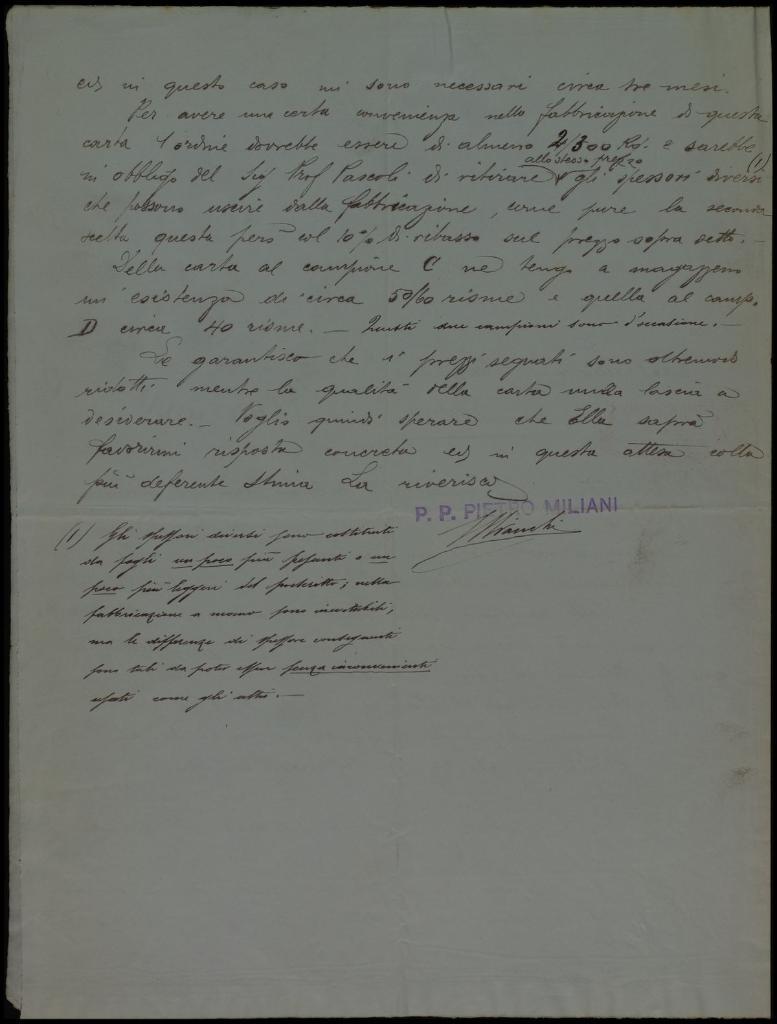 ed in questo caso mi sono necessari circa tre mesi.
Per avere una certa convenienza nella fabbricazione di questa
carta l'ordine dovrebbe essere di almeno 2/300 Kg. e sarebbe
allo stesso prezzo (1)
in obbligo del Sig Prof Pascoli di ritirare gli spessori diversi
che possono uscire dalla fabbricazione, come pure la seconda
scelta questa però col 10% di ribasso sul prezzo sopra detto. —
Della carta al campione C ne tengo a magazzeno
un'esistenza di circa 50/60 risme e quella al camp.
D circa 40 risme. — Questi due campioni sono d'occasione. —
Le garantisco che i prezzi segnati sono oltremodo
ridotti mentre la qualità della carta nulla lascia a
desiderare. — Voglio quindi sperare che Ella saprà
favorirmi risposta concreta ed in questa attesa colla
più deferente stima La riverisco
P. P. PIETRO MILIANI
(1) Gli spessori diversi sono costituiti
da fogli un poco più pesanti o un
poco più leggeri del prescritto; nella
fabbricazione a mano sono inevitabili,
ma le differenze di spessore conseguenti
sono tali da poter esser senza inconvenienti
usati come gli altri. —